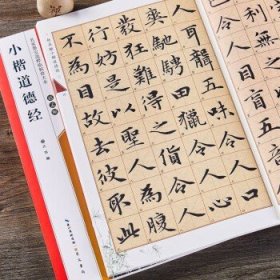 聾五味令人口
爽馳騁田獵令人心
發狂難得之貨令人
行妨是以聖人為腹
不為目故去彼取此
小楷道德经